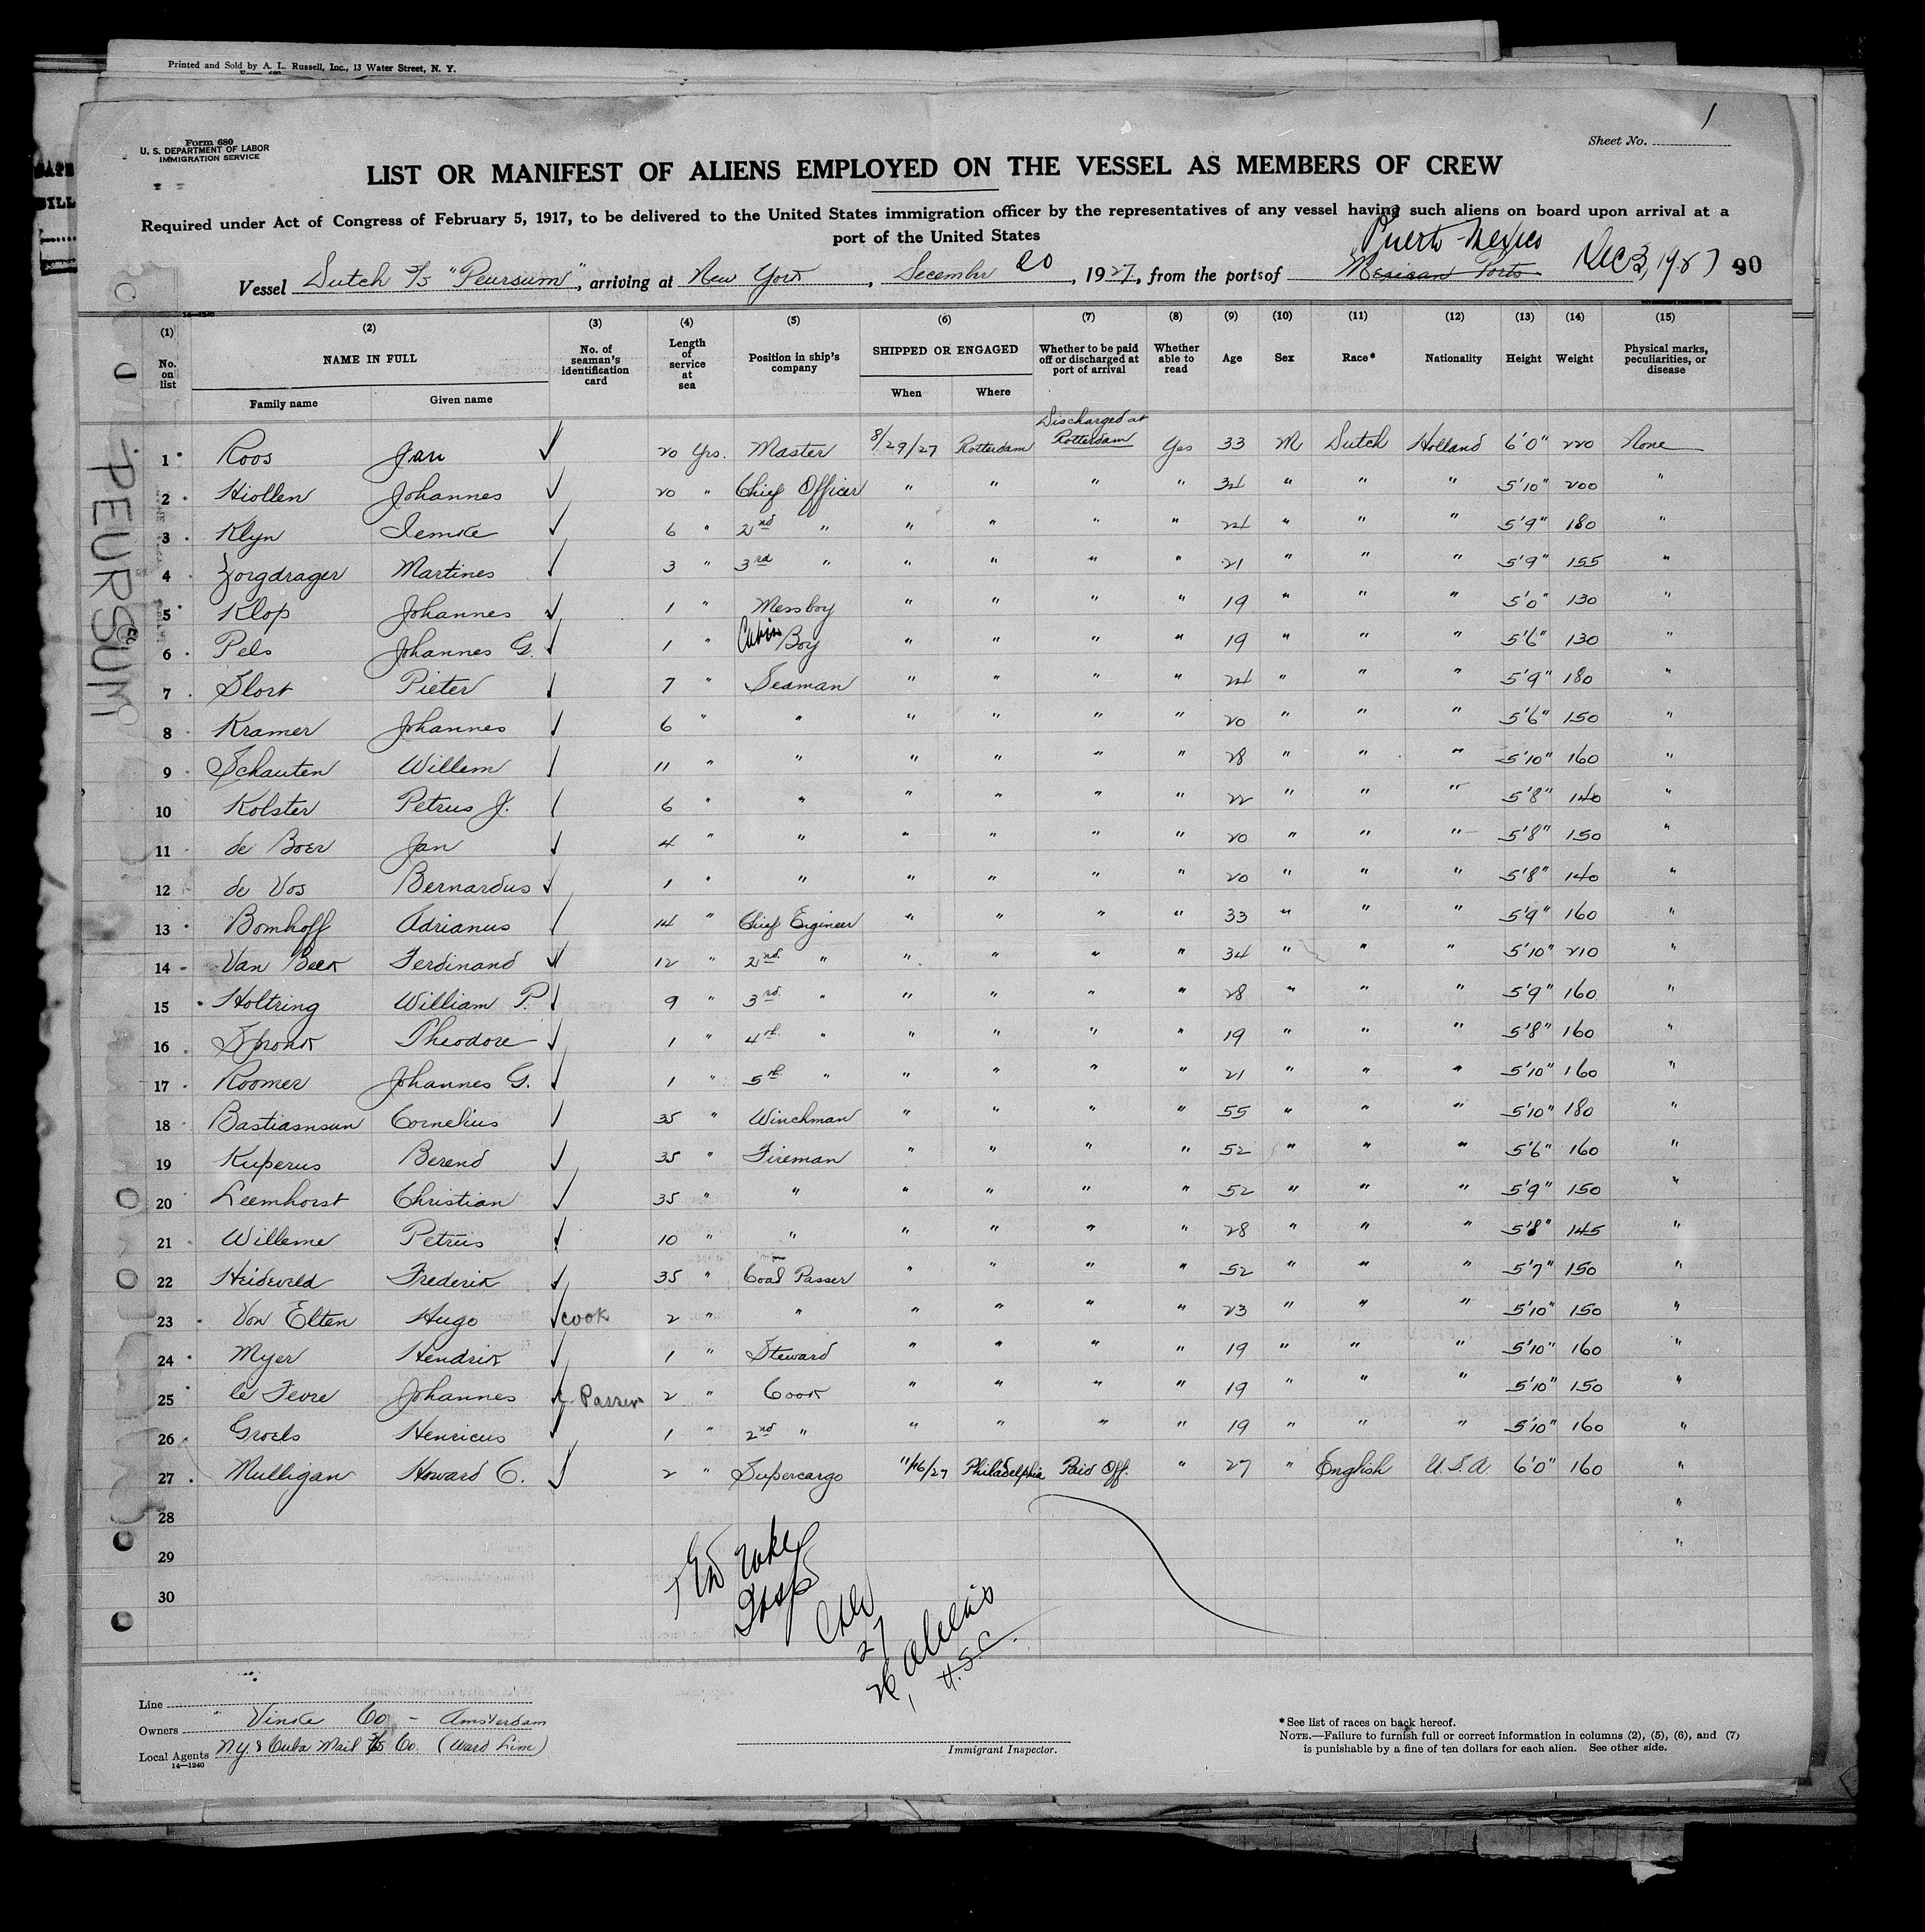 Printed and Sold by A. L. Russell, Inc., 13 Water Street, N. Y.
Form 680
U. S. DEPARTMENT OF LABOR
IMMIGRATION SERVICE
Sheet No. 1
LIST OR MANIFEST OF ALIENS EMPLOYED ON THE VESSEL AS MEMBERS OF CREW
Required under Act of Congress of February 5, 1917, to be delivered to the United States immigration officer by the representatives of any vessel having such aliens on board upon arrival at a
port of the United States
Puerto Mexico
Vessel Dutch S/S "Peursum", arriving at New York, December 20, 1927, from the ports of Mexican Ports Dec 3, 1927 90
14—1240
(1) (2) (3) (4) (5) (6) (7) (8) (9) (10) (11) (12) (13) (14) (15)
No. on list NAME IN FULL No. of seaman's identification card Length of service at sea Position in ship's company SHIPPED OR ENGAGED Whether to be paid off or discharged at port of arrival Whether able to read Age Sex Race* Nationality Height Weight Physical marks, peculiarities, or disease
Family name Given name When Where
Discharged at
1 Roos Jan ✓ 20 Yrs. Master 8/29/27 Rotterdam Rotterdam Yes 33 M Dutch Holland 6'0" 220 None
2 Hiollen Johannes ✓ 20 " Chief Officer " " " " 34 " " " 5'10" 200 "
3 Klyn Iemke ✓ 6 " 2nd " " " " " 24 " " " 5'9" 180 "
4 Zorgdrager Martines ✓ 3 " 3rd " " " " " 21 " " " 5'9" 155 "
5 Klop Johannes ✓ 1 " Messboy " " " " 19 " " " 5'0" 130 "
6 Pels Johannes G. ✓ 1 " Cabin Boy " " " " 19 " " " 5'6" 130 "
7 Slort Pieter ✓ 7 " Seaman " " " " 24 " " " 5'9" 180 "
8 Kramer Johannes ✓ 6 " " " " " " 20 " " " 5'6" 150 "
9 Schauten Willem ✓ 11 " " " " " " 28 " " " 5'10" 160 "
10 Kolster Petrus J. ✓ 6 " " " " " " 22 " " " 5'8" 140 "
11 de Boer Jan ✓ 4 " " " " " " 20 " " " 5'8" 150 "
12 de Vos Bernardus ✓ 1 " " " " " " 20 " " " 5'8" 140 "
13 Bomhoff Adrianus ✓ 14 " Chief Engineer " " " " 33 " " " 5'9" 160 "
14 Van Beek Ferdinand ✓ 12 " 2nd " " " " " 34 " " " 5'10" 210 "
15 Holtring William P. ✓ 9 " 3rd " " " " " 28 " " " 5'9" 160 "
16 Spronk Theodore ✓ 1 " 4th " " " " " 19 " " " 5'8" 160 "
17 Roomer Johannes G. ✓ 1 " 5th " " " " " 21 " " " 5'10" 160 "
18 Bastiasnsun Cornelius ✓ 35 " Winchman " " " " 55 " " " 5'10" 180 "
19 Kuperus Berend ✓ 35 " Fireman " " " " 52 " " " 5'6" 160 "
20 Leemhorst Christian ✓ 35 " " " " " " 52 " " " 5'9" 150 "
21 Willeme Petrus ✓ 10 " " " " " " 28 " " " 5'8" 145 "
22 Heideveld Frederik ✓ 35 " Coal Passer " " " " 52 " " " 5'7" 150 "
23 Von Elten Hugo ✓ cook 2 " " " " " " 23 " " " 5'10" 150 "
24 Myer Hendrik ✓ 1 " Steward " " " " 19 " " " 5'10" 160 "
25 le Fevre Johannes ✓ C. Passer 2 " Cook " " " " 19 " " " 5'10" 150 "
26 Groels Henricus ✓ 1 " 2nd " " " " " 19 " " " 5'10" 160 "
27 Mulligan Howard C. ✓ 2 " Supercargo 11/16/27 Philadelphia Paid Off. " 27 " English U.S.A. 6'0" 160 "
28 "
29 "
30
27
26 aliens
1 U.S.C.
PEURSUM
Line
Owners Vinke Co - Amsterdam
Local Agents N.Y. & Cuba Mail S/S Co. (Ward Line)
14—1240
Immigrant Inspector.
*See list of races on back hereof.
NOTE.—Failure to furnish full or correct information in columns (2), (5), (6), and (7)
is punishable by a fine of ten dollars for each alien. See other side.